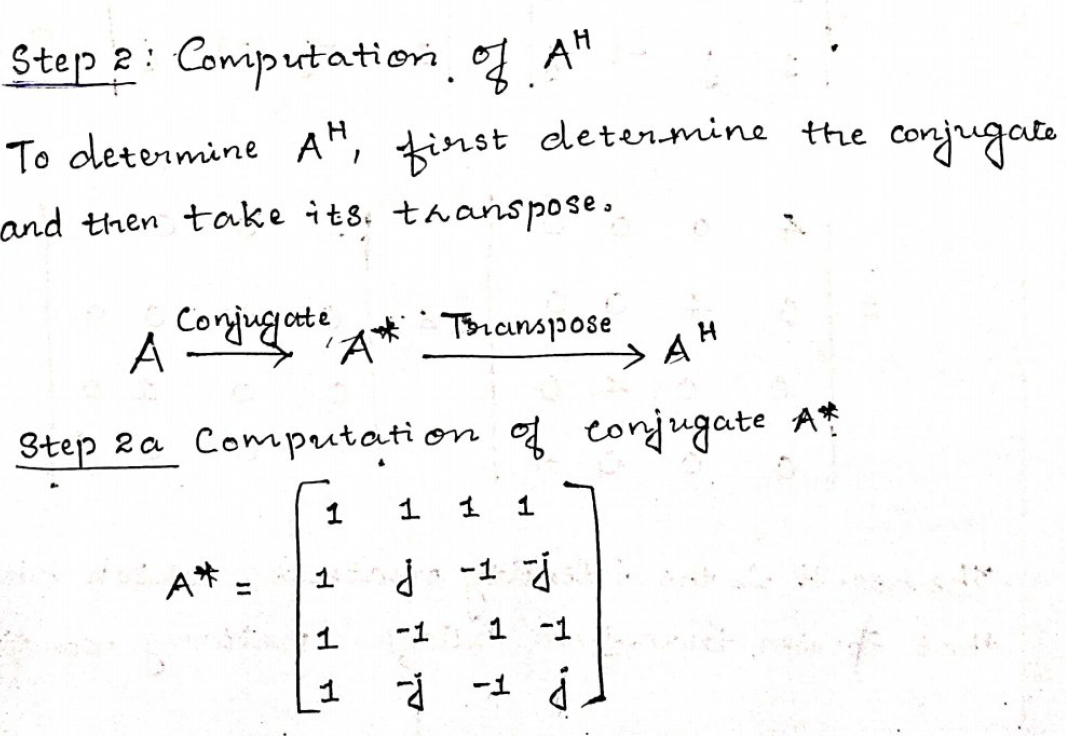 Step 2: Computation of A^H
To determine A^H, first determine the conjugate
and then take its transpose.
A \xrightarrow{Conjugate} A* \xrightarrow{Transpose} A^H
Step 2a Computation of conjugate A*
A* = [ 1 1 1 1
1 j -1 -j
1 -1 1 -1
1 -j -1 j ]